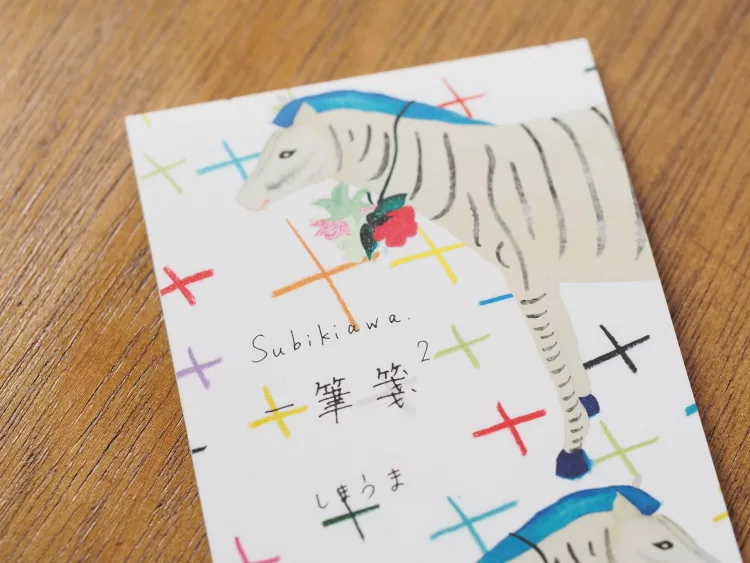 Subikiawa.
一筆箋 2
しまうま